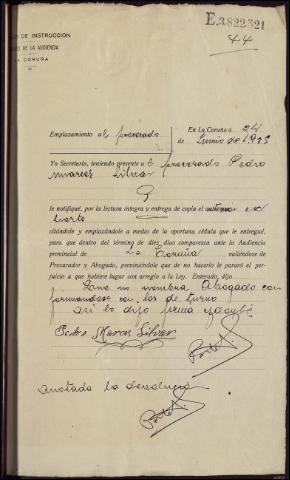 E.3.822.521
44
DE INSTRUCCION
DE LA AUDIENCIA
CORUÑA
Emplazamiento al procesado
En La Coruña a 24
de Junio de 193
Yo Secretario, teniendo presente al procesado Pedro
Marcos Silvar
le notifiqué, por la lectura íntegra y entrega de copia el
citándole y emplazándole a medio de la oportuna cédula que le entregué,
para que dentro del término de diez días comparezca ante la Audiencia
provincial de La Coruña valiéndose de
Procurador y Abogado, previniéndole que de no hacerlo le parará el per-
juicio a que hubiere lugar con arreglo a la Ley. Enterado, dijo
que no nombra Abogado con
formandose con los de turno
así lo dijo firma y doy fé
Pedro Marcos Silvar
Anotada la